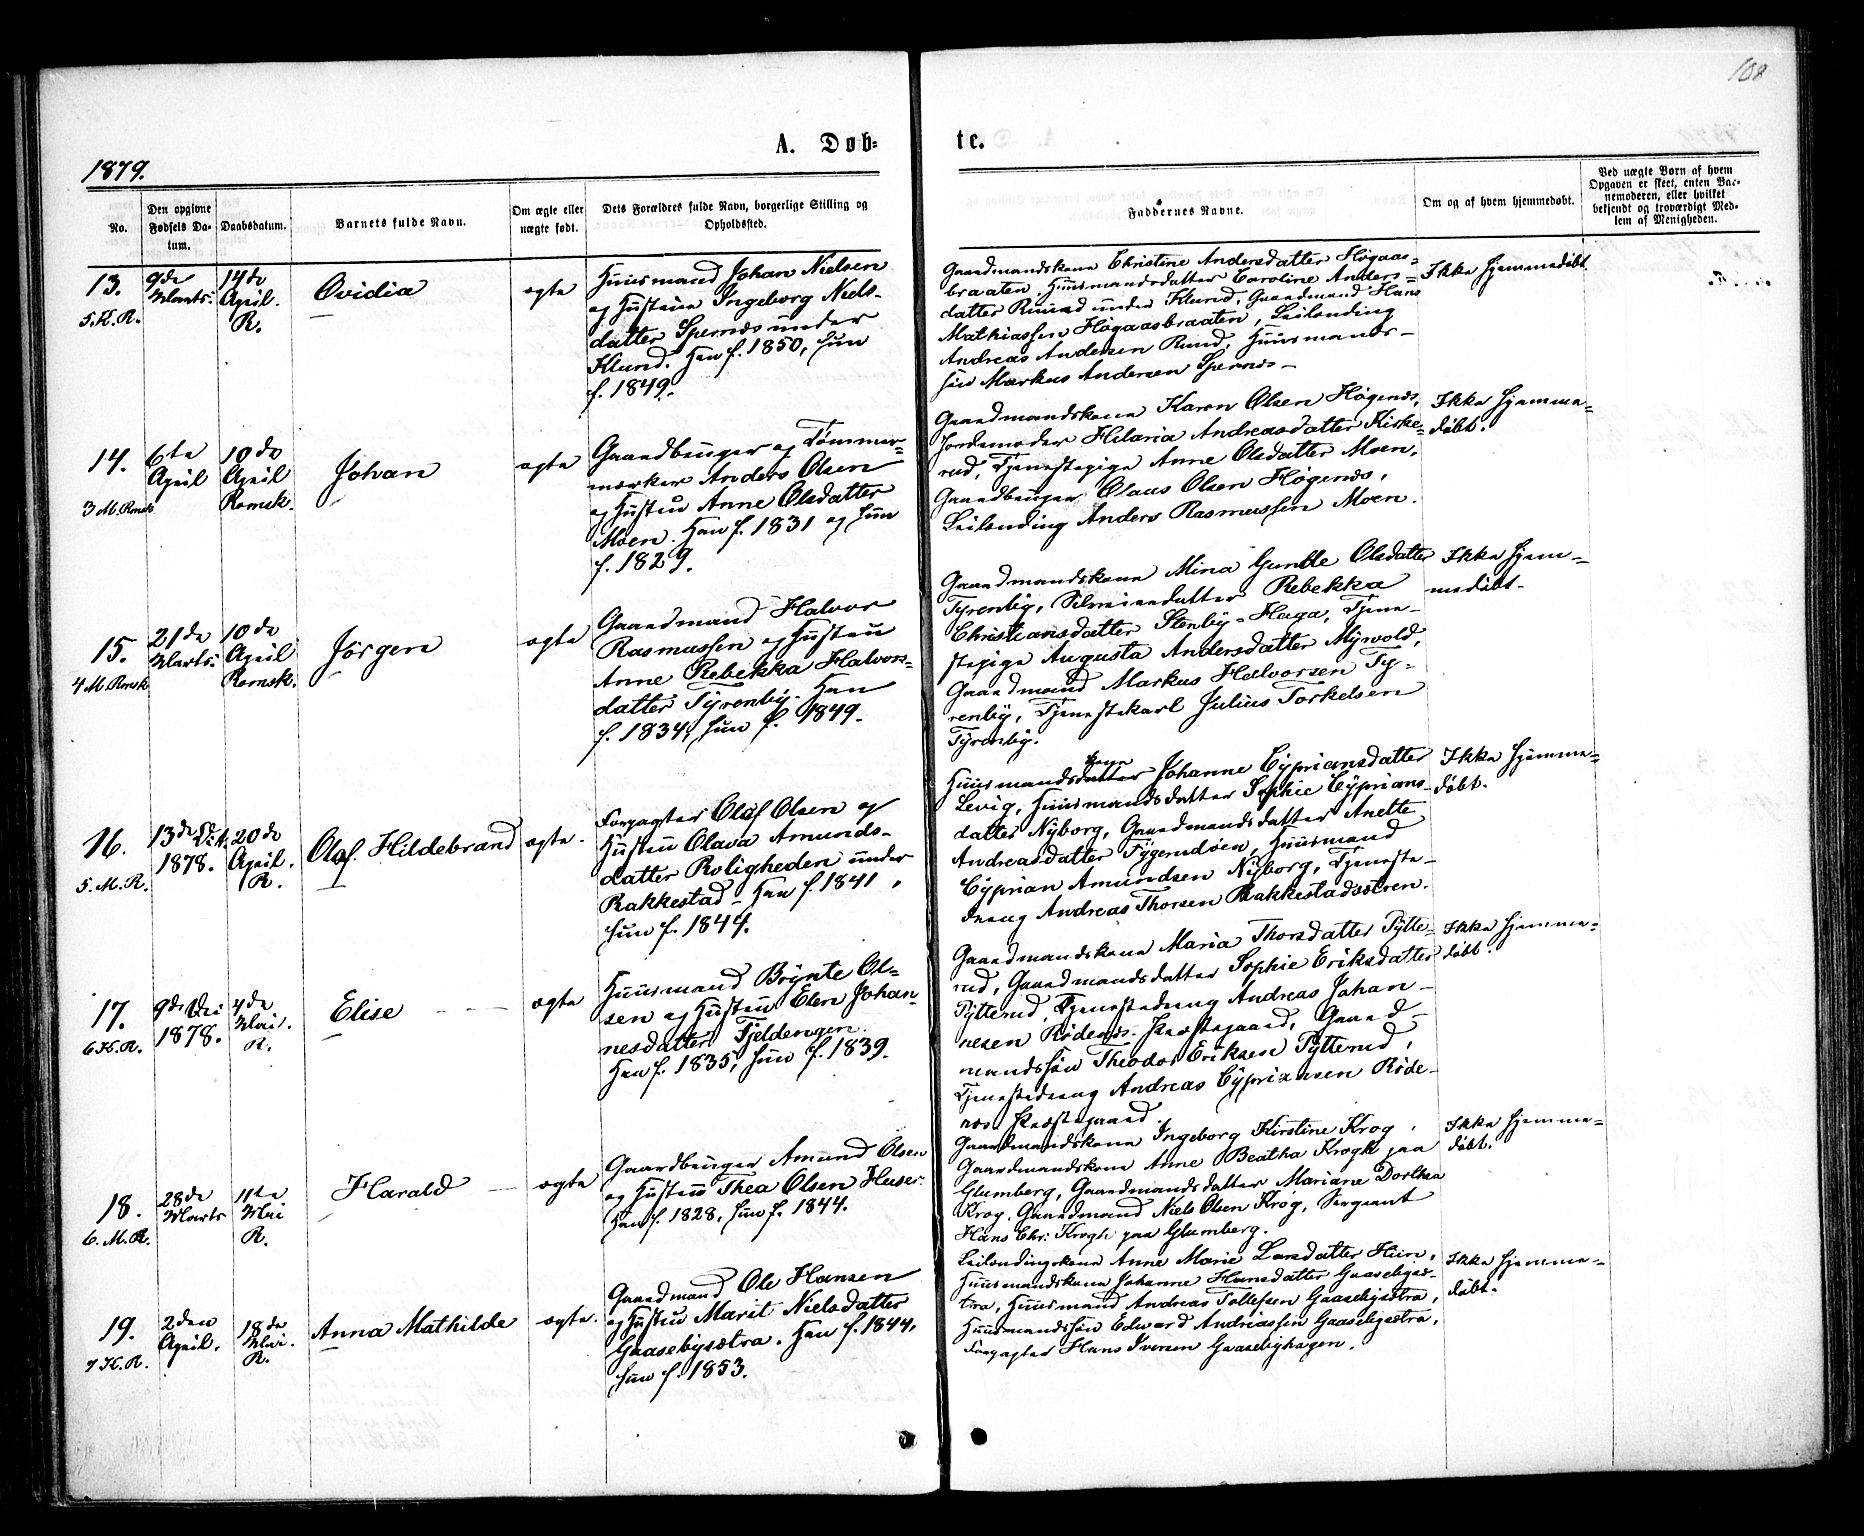 108
A. Døb-
te.
1879.
No.
Den opgivne Fødsels Da-
tum.
Daabsdatum.
Barnets fulde Navn.
Om ægte eller
uægte født.
Dets Forældres fulde Navn, borgerlige Stilling og
Opholdssted.
Faddernes Navne.
Om og af hvem hjemmedøbt.
Ved uægte Børn af hvem
Opgaven er skeet, enten Bar-
nemoderen, eller hvilket
bekjendt og troværdigt Med-
lem af Menigheden.
13.
5. K. R.
9de
Marts.
14de
April.
R.
Ovidia
ægte
Huusmand Johan Nielsen
og Hustru Ingeborg Niels-
datter Spernæs under
Klund. Han f. 1850, hun
f. 1849.
Gaardmandskone Christine Andersdatter Høgaas-
braaten, Huusmandsdatter Caroline Anders-
datter Ruud under Klund, Gaardmand Hans
Mathiassen Høgaasbraaten, Leilending
Andreas Andersen Ruud, Huusmands-
søn Markus Andersen Spernæs -
Ikke hjemmedøbt.
14.
3 M. Romsk.
6te
April
10de
April
Romsk.
Johan
ægte
Gaardbruger og Tømmer-
mærker Anders Olsen
og Hustru Anne Olsdatter
Moen. Han f. 1831 og hun
f. 1829.
Gaardmandskone Karen Olsen Høgenæs,
Jordemoder Hilaria Andreasdatter Kirke-
rud, Tjenestepige Anne Olsdatter Moen,
Gaardbruger Olaus Olsen Høgenæs,
Leilending Anders Rasmussen Moen.
Ikke hjemme-
døbt.
15.
4 M. Romsk.
21de
Marts.
10de
April
Romsk.
Jörgen
ægte
Gaardmand Halvor
Rasmussen og Hustru
Anne Rebekka Halvors-
datter Tyrenby. Han
f. 1834, hun f. 1849.
Gaardmandskone Mina Gunille Olsdatter
Tyrenby, Rebekka
Christiansdatter Stenby-Haga, Tjene-
stepige Augusta Andersdatter Myrvold,
Gaardmand Markus Halvorsen Ty-
renby, Tjenestekarl Julius Torkelsen
Tyrenby.
Ikke hjem-
medøbt.
16.
5. M. R.
13de Dec.
1878.
20de
April.
R.
Olaf Hildebrand
ægte.
Forpagter Olaf Olsen og
Hustru Olava Amunds-
datter Roligheden under
Rakkestad - Han f. 1841,
hun f. 1844.
kone
Huusmandsdatter Johanne Cypriansdatter
Levig, Huusmandsdatter Sophie Cyprians-
datter Nyborg, Gaardmandsdatter Anette
Andreasdatter Tygerudøen, Huusmand
Cyprian Amundsen Nyborg, Tjeneste-
dreng Andreas Thorsen Rakkestadsætren.
Ikke hjemme-
døbt.
17.
6 K. R.
9de Dec
1878.
4de
Mai.
R.
Elise
ægte
Huusmand Brynte Ol-
sen og Hustru Elen Johan-
nesdatter Fjeldengen.
Han f. 1835, hun f. 1839.
Gaardmandskone Maria Thorsdatter Pytte-
rud, Gaardmandsdatter Sophie Eriksdatter
Pytterud, Tjenestedreng Andreas Johan-
nesen Rødenæs Præstegaard, Gaard-
mandssøn Theodor Eriksen Pytterud,
Tjenestedreng Andreas Cypriansen Røde-
næs Præstegaard.
Ikke hjemme-
døbt.
18.
6. M. R.
28de
Marts
11te
Mai
R.
Harald
ægte
Gaardbruger Amund Olsen
og Hustru Thea Olsen Huser
Han f. 1828, hun f. 1844.
Gaardmandskone Ingeborg Kirstine Krog,
Gaardmandskone Anne Beatha Krogh paa
Glumberg, Gaardmandsdatter Mariane Dorthea
Krog, Gaardmand Niels Olsen Krog, Sergeant
Hans Chr: Krogh paa Glumberg.
Ikke hjemme-
døbt.
19.
7 K. R.
2den
April.
18de
Mai.
R.
Anna Mathilde
ægte.
Gaardmand Ole Hansen
og Hustru Marit Nielsdatter
Gaasebysætra. Han f. 1844,
hun f. 1853.
Leilendingskone Anne Marie Larsdatter
Huusmandskone Johanne Hansdatter Gaasebysæ-
tra, Huusmand Andreas Tollefsen Gaasebysætra,
Huusmandssøn Edvard Andreassen Gaasebysætra,
Forpagter Hans Iversen Gaasebyhagen.
Ikke hjemme-
døbt.